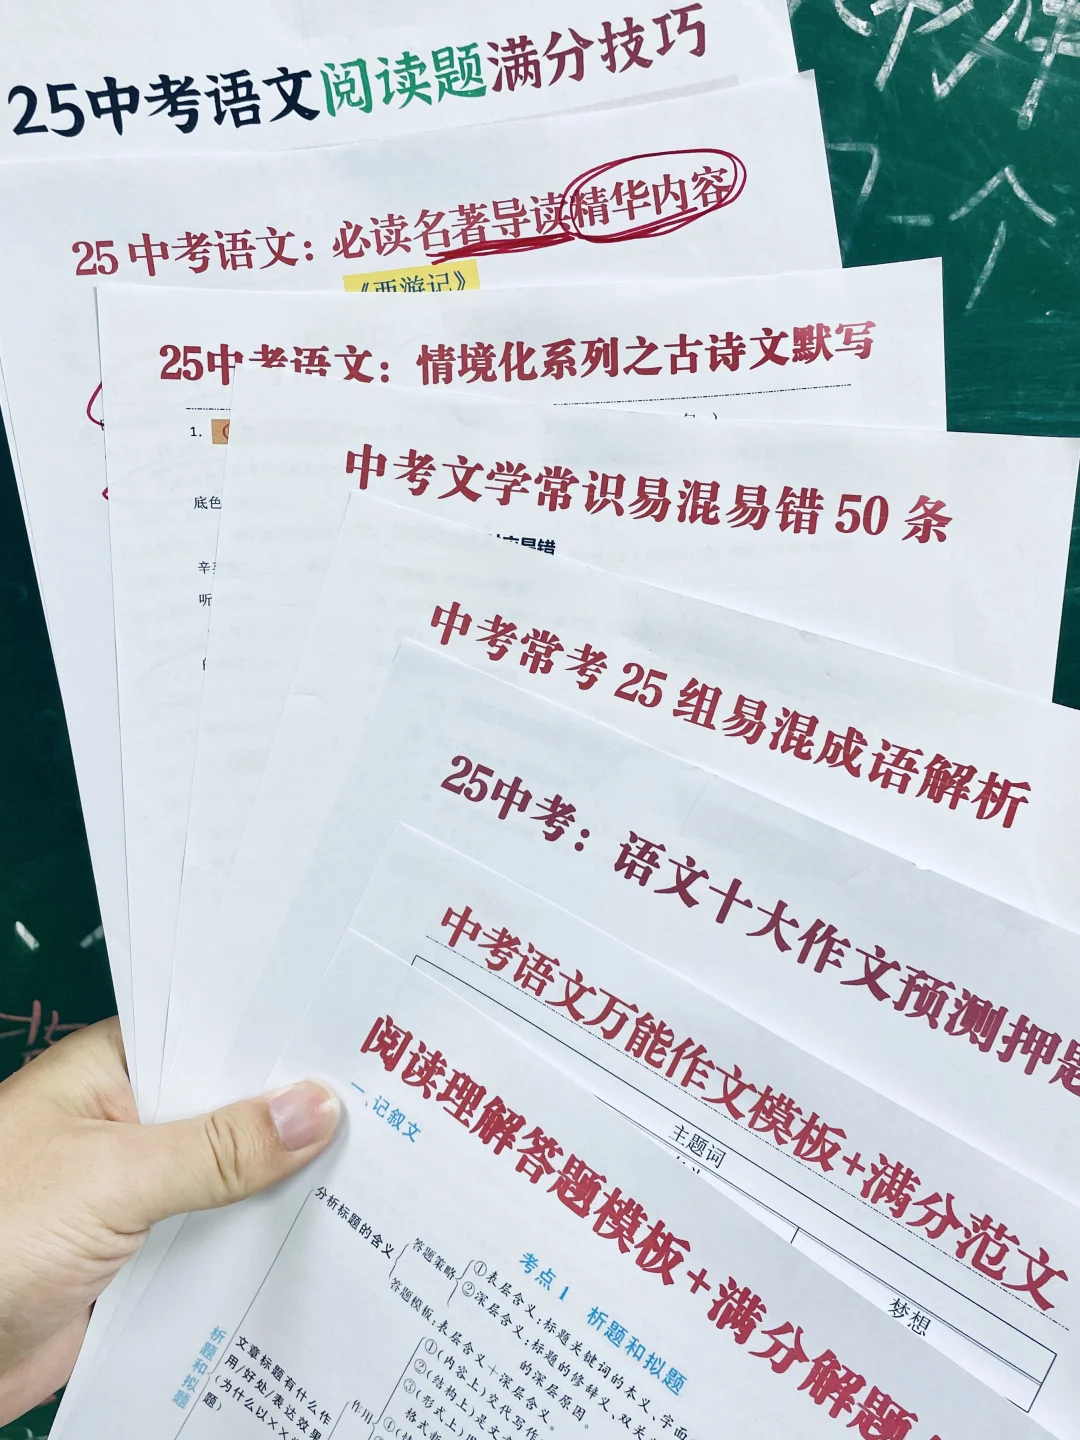 25中考语文阅读题满分技巧
25 中考语文：必读名著导读精华内容
《西游记》
25中考语文：情境化系列之古诗文默写
1.
底色
听
中考文学常识易混易错 50 条
中考常考 25 组易混成语解析
25中考：语文十大作文预测押题
中考语文万能作文模板+满分范文
主题词
梦想
阅读理解答题模板+满分解题
一、记叙文
考点 1 析题和拟题
分析标题的含义
答题策略
①表层含义：标题关键词的本义、字面
②深层含义：标题的修辞义、双关
的深层原因。
答题模板：表层含义＋深层含义。
析题和拟题
文章标题有什么作
用/好处/表达效果
(为什么以××
题)
作用
①(内容上)交代写作
②(结构上)是文
③(形式上)